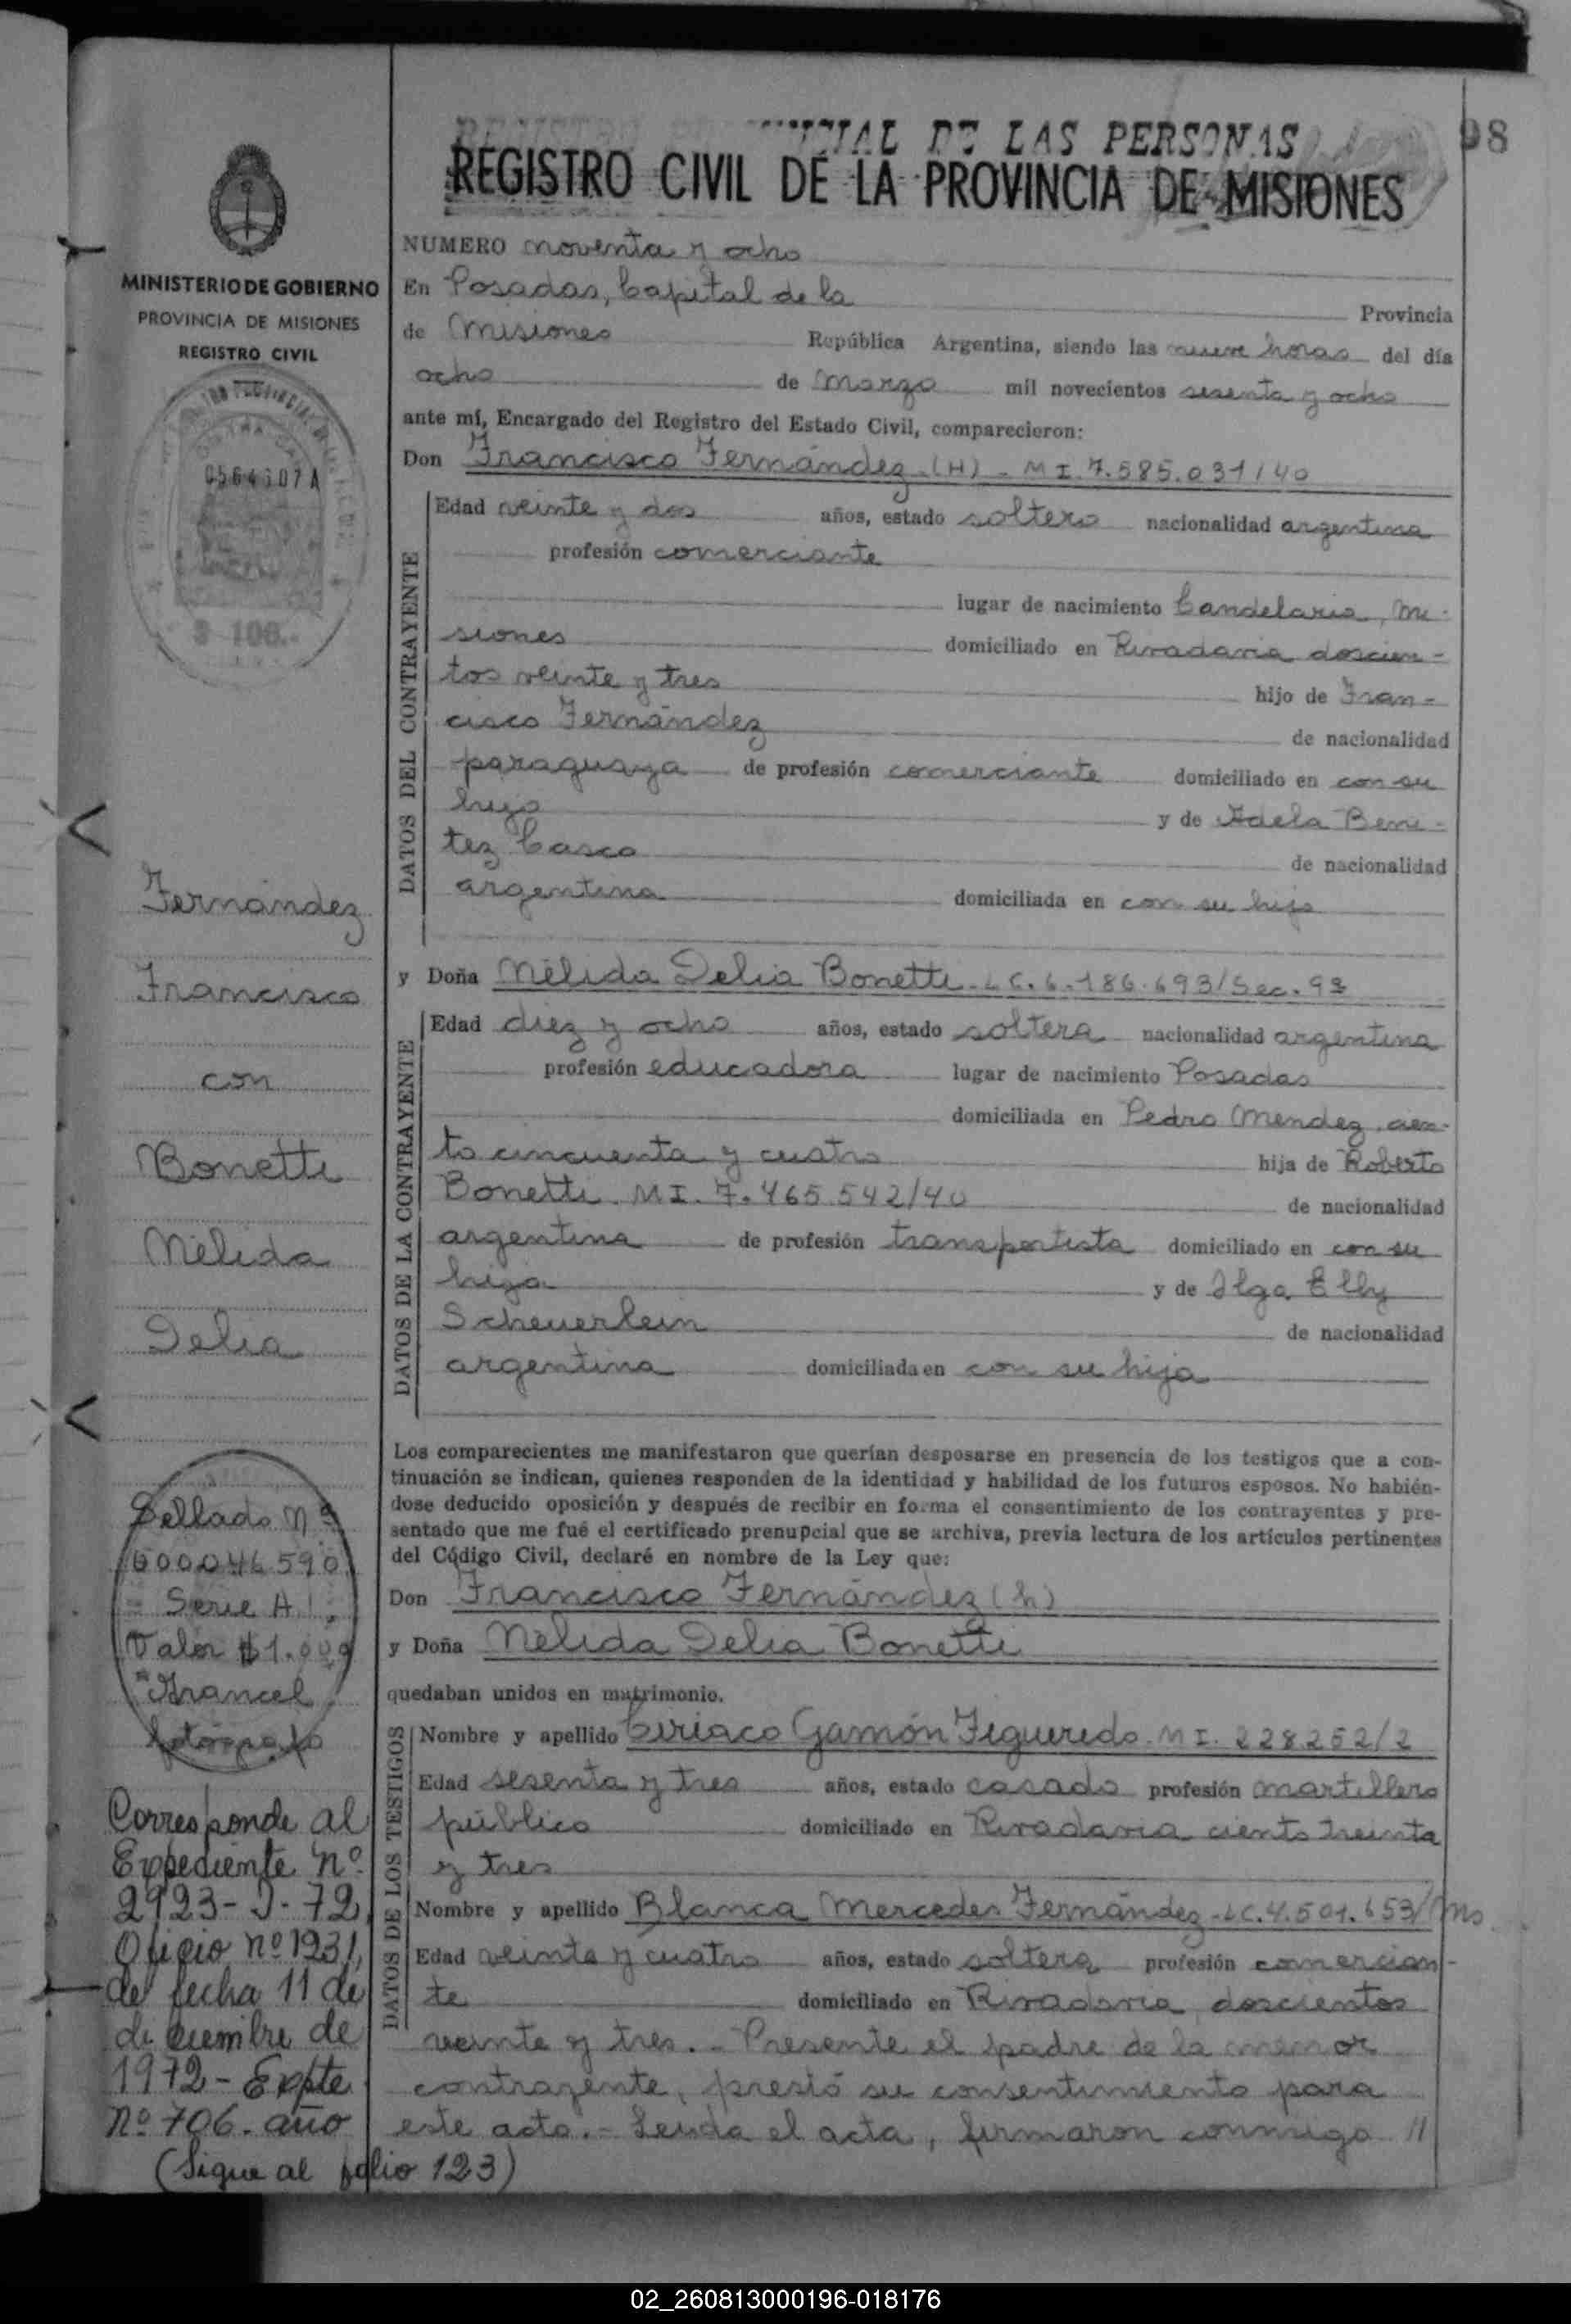 98
REGISTRO CIVIL DE LA PROVINCIA DE MISIONES
DE LAS PERSONAS
MINISTERIO DE GOBIERNO
PROVINCIA DE MISIONES
REGISTRO CIVIL
0564307A
$ 100.-
NUMERO noventa y ocho
En Posadas, Capital de la Provincia
de Misiones República Argentina, siendo las nueve horas del día
ocho de Marzo mil novecientos sesenta y ocho
ante mí, Encargado del Registro del Estado Civil, comparecieron:
Don Francisco Fernández (H) - M I. 7.585.031/40
DATOS DEL CONTRAYENTE
Edad veinte y dos años, estado soltero nacionalidad argentina
profesión comerciante
lugar de nacimiento Candelaria, Mi-
siones domiciliado en Rivadavia doscien-
tos veinte y tres hijo de Fran-
cisco Fernández de nacionalidad
paraguaya de profesión comerciante domiciliado en con su
hijo y de Adela Bení-
tez Casco de nacionalidad
argentina domiciliada en con su hijo
y Doña Nélida Delia Bonetti - L C. 6.186.693/Sec. 93
DATOS DE LA CONTRAYENTE
Edad diez y ocho años, estado soltera nacionalidad argentina
profesión educadora lugar de nacimiento Posadas
domiciliada en Pedro Mendez cien-
to cincuenta y cuatro hija de Roberto
Bonetti. M I. 7.465.542/40 de nacionalidad
argentina de profesión transportista domiciliado en con su
hija y de Ilga Elly
Scheuerlein de nacionalidad
argentina domiciliada en con su hija
Los comparecientes me manifestaron que querían desposarse en presencia de los testigos que a con-
tinuación se indican, quienes responden de la identidad y habilidad de los futuros esposos. No habién-
dose deducido oposición y después de recibir en forma el consentimiento de los contrayentes y pre-
sentado que me fué el certificado prenupcial que se archiva, previa lectura de los artículos pertinentes
del Código Civil, declaré en nombre de la Ley que:
Don Francisco Fernández (h)
y Doña Nélida Delia Bonetti
quedaban unidos en matrimonio.
DATOS DE LOS TESTIGOS
Nombre y apellido Ciriaco Gamón Figueredo. M I. 228252/2
Edad sesenta y tres años, estado casado profesión martillero
público domiciliado en Rivadavia ciento treinta
y tres
Nombre y apellido Blanca Mercedes Fernández - L C. 4.501.653/Ms
Edad veinte y cuatro años, estado soltera profesión comercian-
te domiciliado en Rivadavia doscientos
veinte y tres. - Presente el padre de la menor
contrayente, prestó su consentimiento para
este acto. - Leída el acta, firmaron conmigo //
Fernández
Francisco
con
Bonetti
Nélida
Delia
Sellado Nº
000046590
Serie A
Valor $1.000
Arancel
Corresponde al
Expediente nº
2923-J-72,
Oficio nº 1231,
de fecha 11 de
diciembre de
1972 - Expte
Nº 706. año
(Sigue al folio 123)
02_260813000196-018176